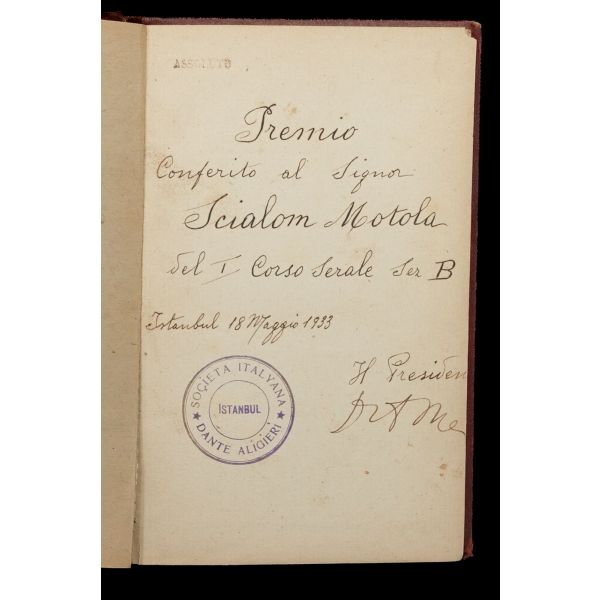 ASSOLUTO
Premio
Conferito al Signor
Scialom Motola
del I Corso Serale Ser B
Istanbul 18 Maggio 1933
Il Presiden
SOCİETA ITALYANA
İSTANBUL
DANTE ALIGIERI